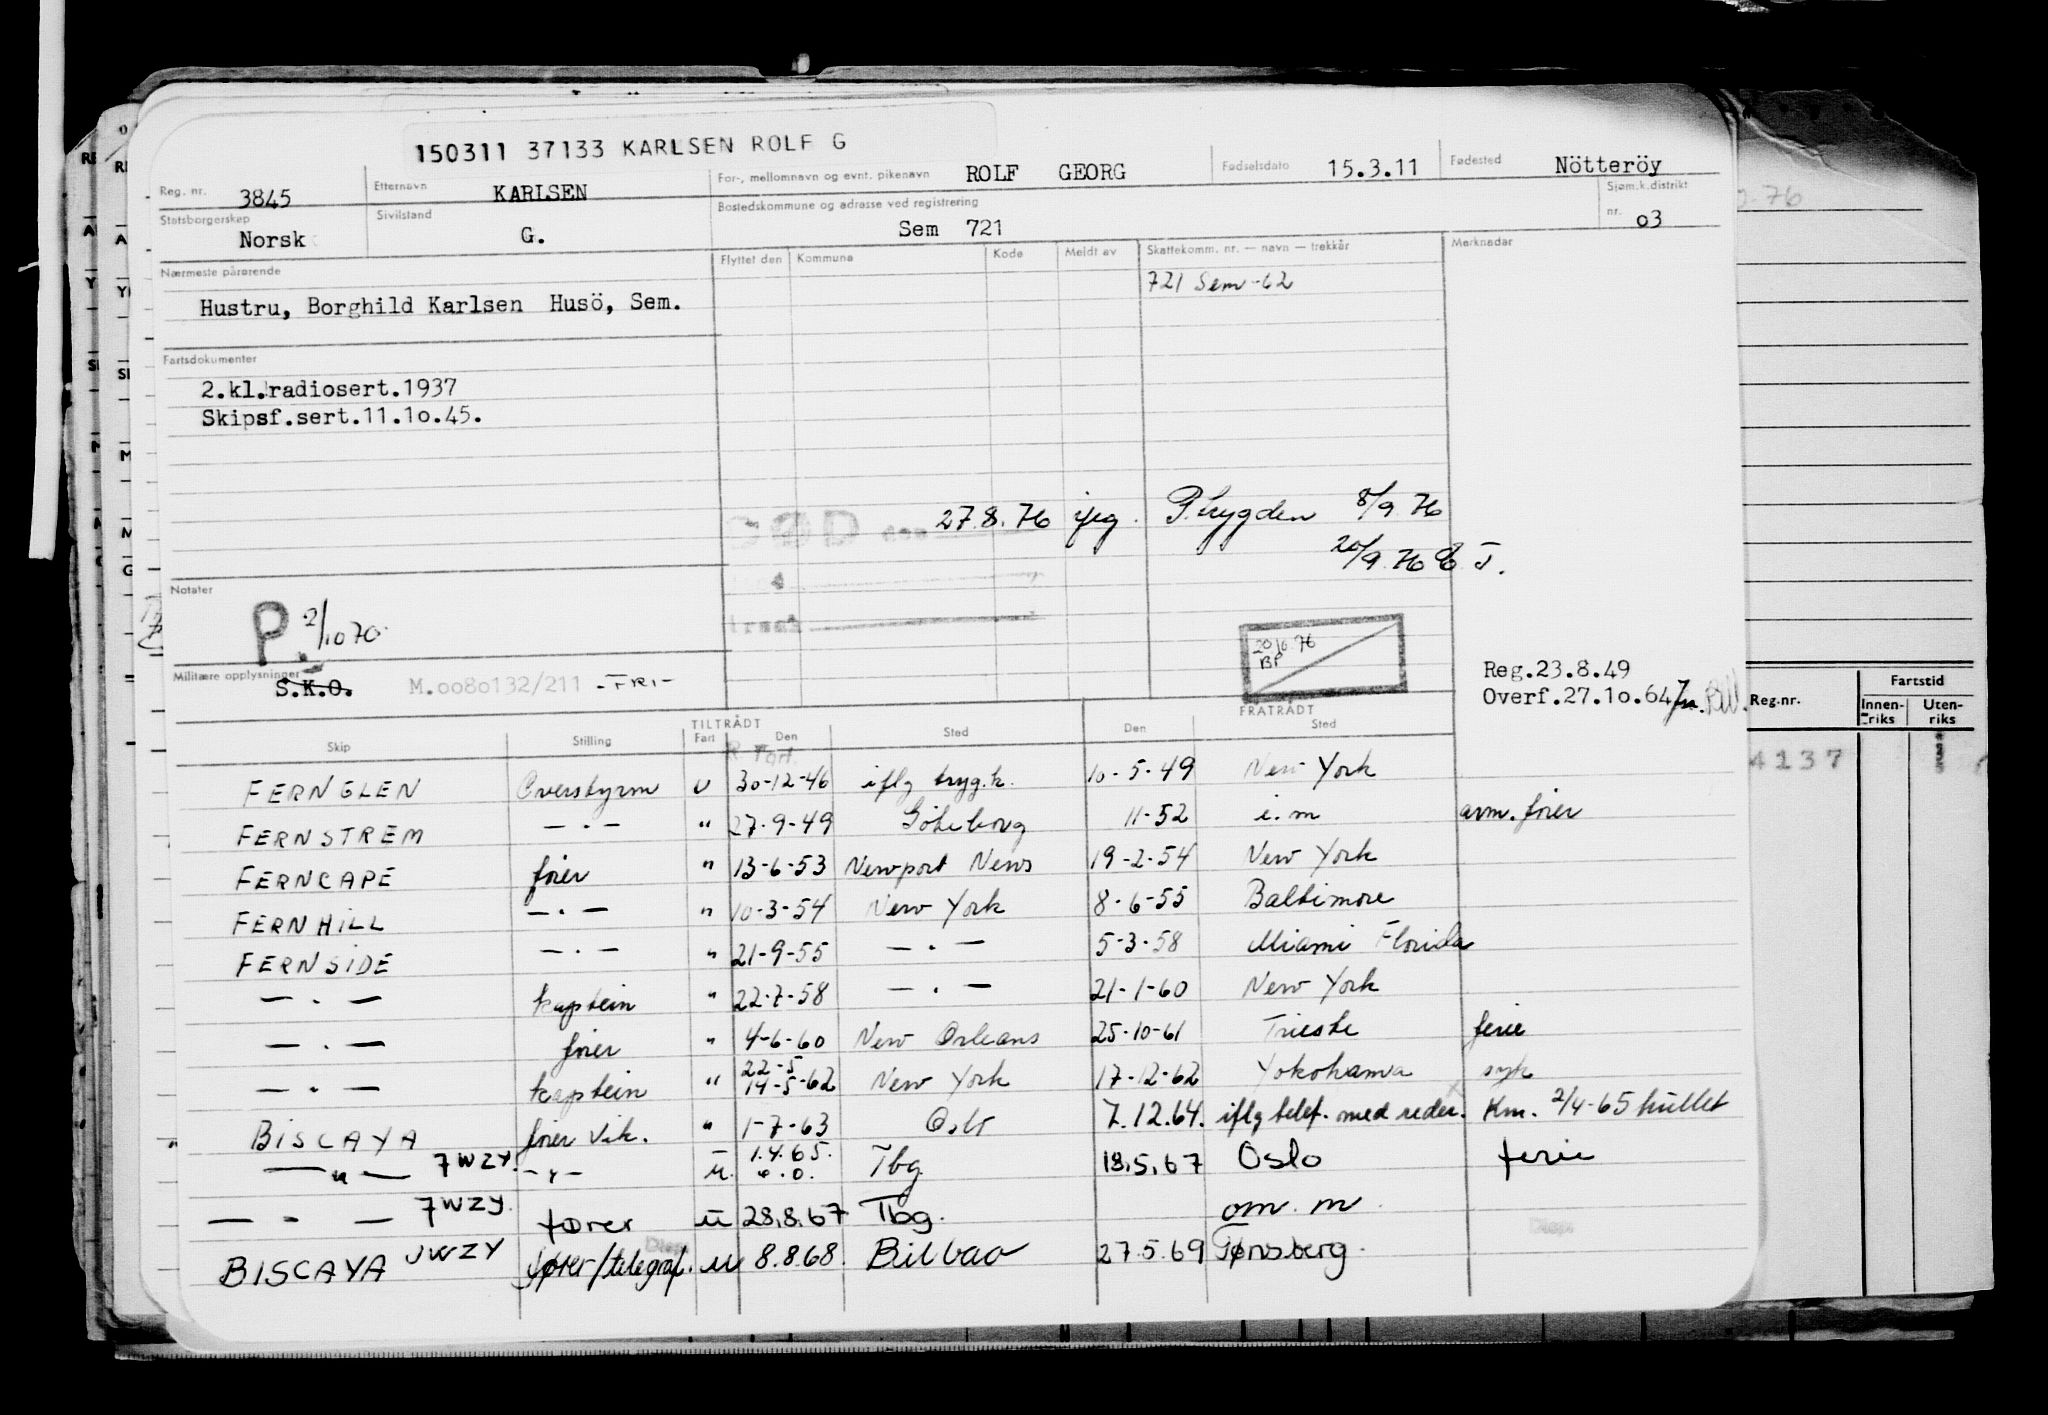 150311 37133 KARLSEN ROLF G
Reg. nr. 3845 Etternavn KARLSEN For-, mellomnavn og evnt. pikenavn ROLF GEORG Fødselsdato 15.3.11 Fødested Nötteröy
Statsborgerskap Norsk Sivilstand G. Bostedskommune og adresse ved registrering Sem 721 Sjøm.k.distrikt nr. o3
Nærmeste pårørende Flyttet den Kommune Kode Meldt av Skattekomm. nr. — navn — trekkår Merknader
721 Sem -62
Hustru, Borghild Karlsen Husö, Sem.
Fartsdokumenter
2.kl.radiosert.1937
Skipsf.sert.11.1o.45.
DØD den 27.8.76 ifg. P.trygden 8/9 76
20/9.76
Notater
P. 2/10 70
20/6.76
BP
Militære opplysninger S.K.O. M.oo80132/211 -FRI-
Reg.23.8.49
Overf.27.1o.64
TILTRÅDT FRATRÅDT
Skip Stilling Fart Den Sted Den Sted
FERNGLEN Overstyrm u 30-12-46 iflg tryg.k. 10-5-49 New York
FERNSTREM — · — " 27-9-49 Göteborg 11-52 i.m avm. fører
FERNCAPE fører " 13-6-53 Newport News 19-2-54 New York
FERNHILL — · — " 10-3-54 New York 8-6-55 Baltimore
FERNSIDE — · — " 21-9-55 — · — 5-3-58 Miami Florida
— · — kaptein " 22-7-58 — · — 21-1-60 New York
— · — fører " 4-6-60 New Orleans 25-10-61 Trieste ferie
— · — kaptein " 22-5 14-5-62 New York 17-12-62 Yokohama syk
BISCAYA fører vik. " 1-7-63 Oslo 7.12.64. iflg telef. med reder. Km. 2/4-65 hullet
— " — 7WZY. — " — u. 1.4.65. Tbg 18.5.67 Oslo ferie
— " — 7WZY. fører u 28.8.67 Tbg. om. m.
BISCAYA JWZY fører/telegraf. u 8.8.68. Bilbao 27.5.69 Tønsberg.
Reg.nr. Fartstid
Innen-riks Uten-riks
4137